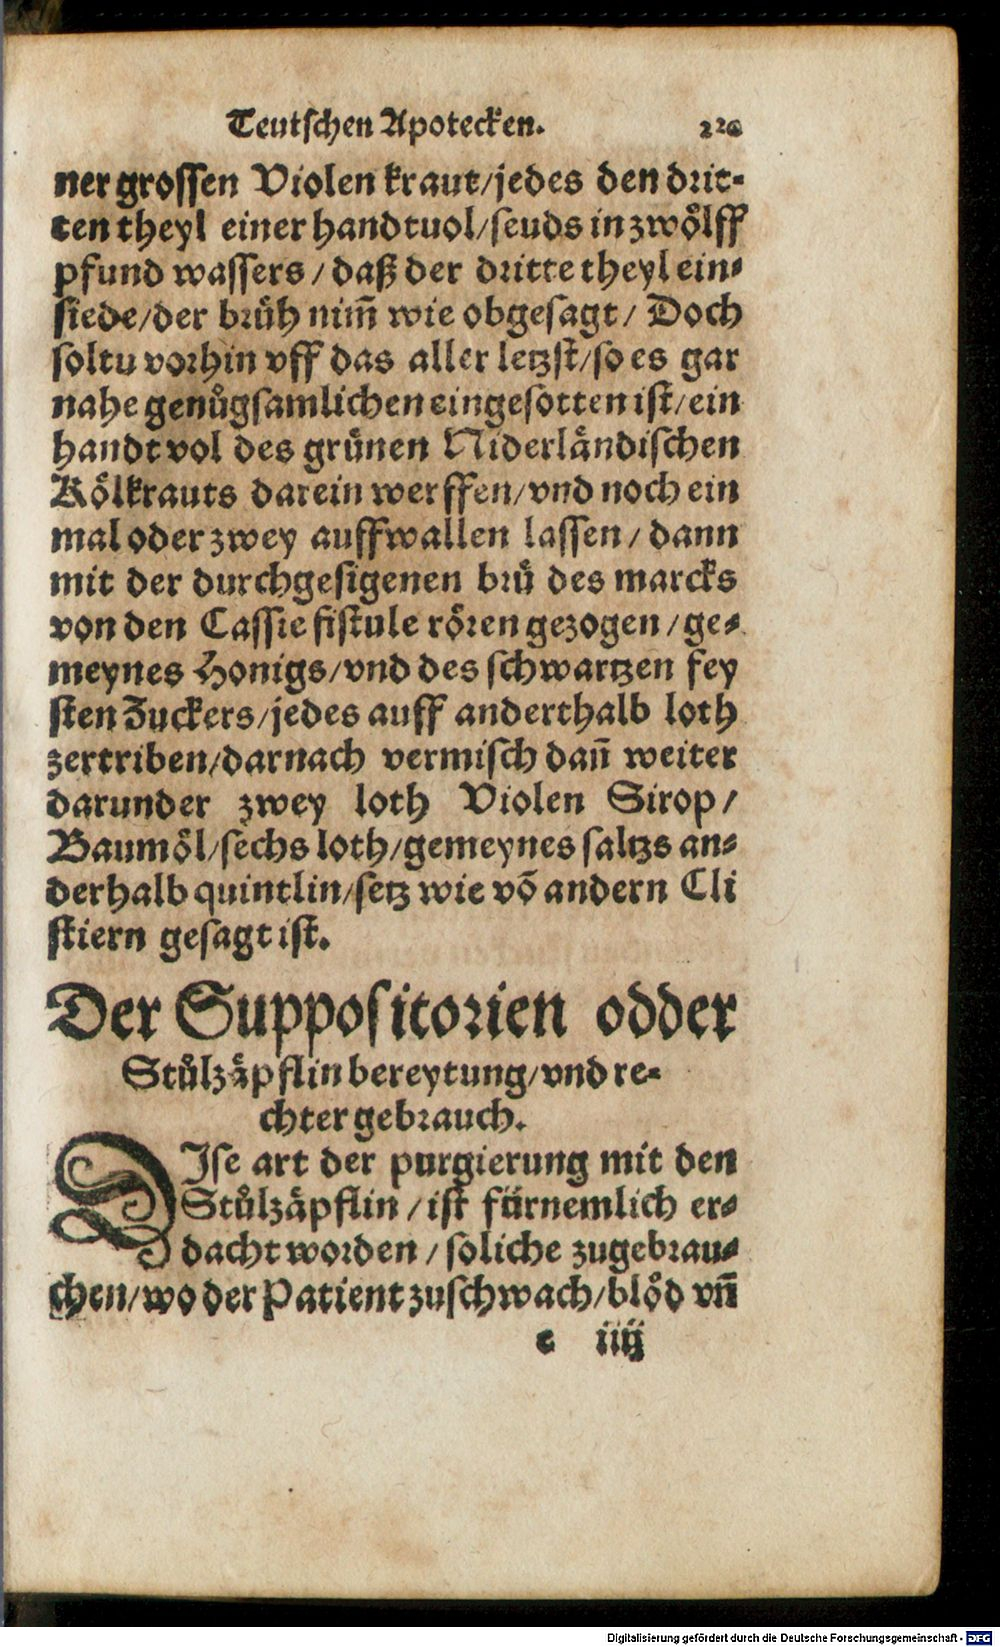 Teutschen Apotecken. 220
ner grossen Violen kraut/jedes den drit-
ten theyl einer handtuol/seuds in zwoͤlff
pfund wassers / daß der dritte theyl ein-
siede/der bruͤh nim̃ wie obgesagt / Doch
soltu vorhin vff das aller letzst/so es gar
nahe genuͦgsamlichen eingesotten ist/ein
handt vol des gruͤnen Niderlaͤndischen
Koͤlkrauts darein werffen/vnd noch ein
mal oder zwey auffwallen lassen / dann
mit der durchgesigenen bruͤ des marcks
von den Cassie fistule roͤren gezogen / ge-
meynes Honigs/vnd des schwartzen fey
sten Zuckers/jedes auff anderthalb loth
zertriben/darnach vermisch dañ weiter
darunder zwey loth Violen Sirop /
Baumoͤl/sechs loth/gemeynes saltzs an-
derhalb quintlin/setz wie võ andern Cli
stiern gesagt ist.
Der Suppositorien odder
Stuͦlzaͤpflin bereytung/vnd re-
chter gebrauch.
DIse art der purgierung mit den
Stuͦlzaͤpflin / ist fuͤrnemlich er-
dacht worden / soliche zugebrau-
chen/wo der Patient zu schwach/bloͤd vñ
c iiij
Digitalisierung gefördert durch die Deutsche Forschungsgemeinschaft - DFG